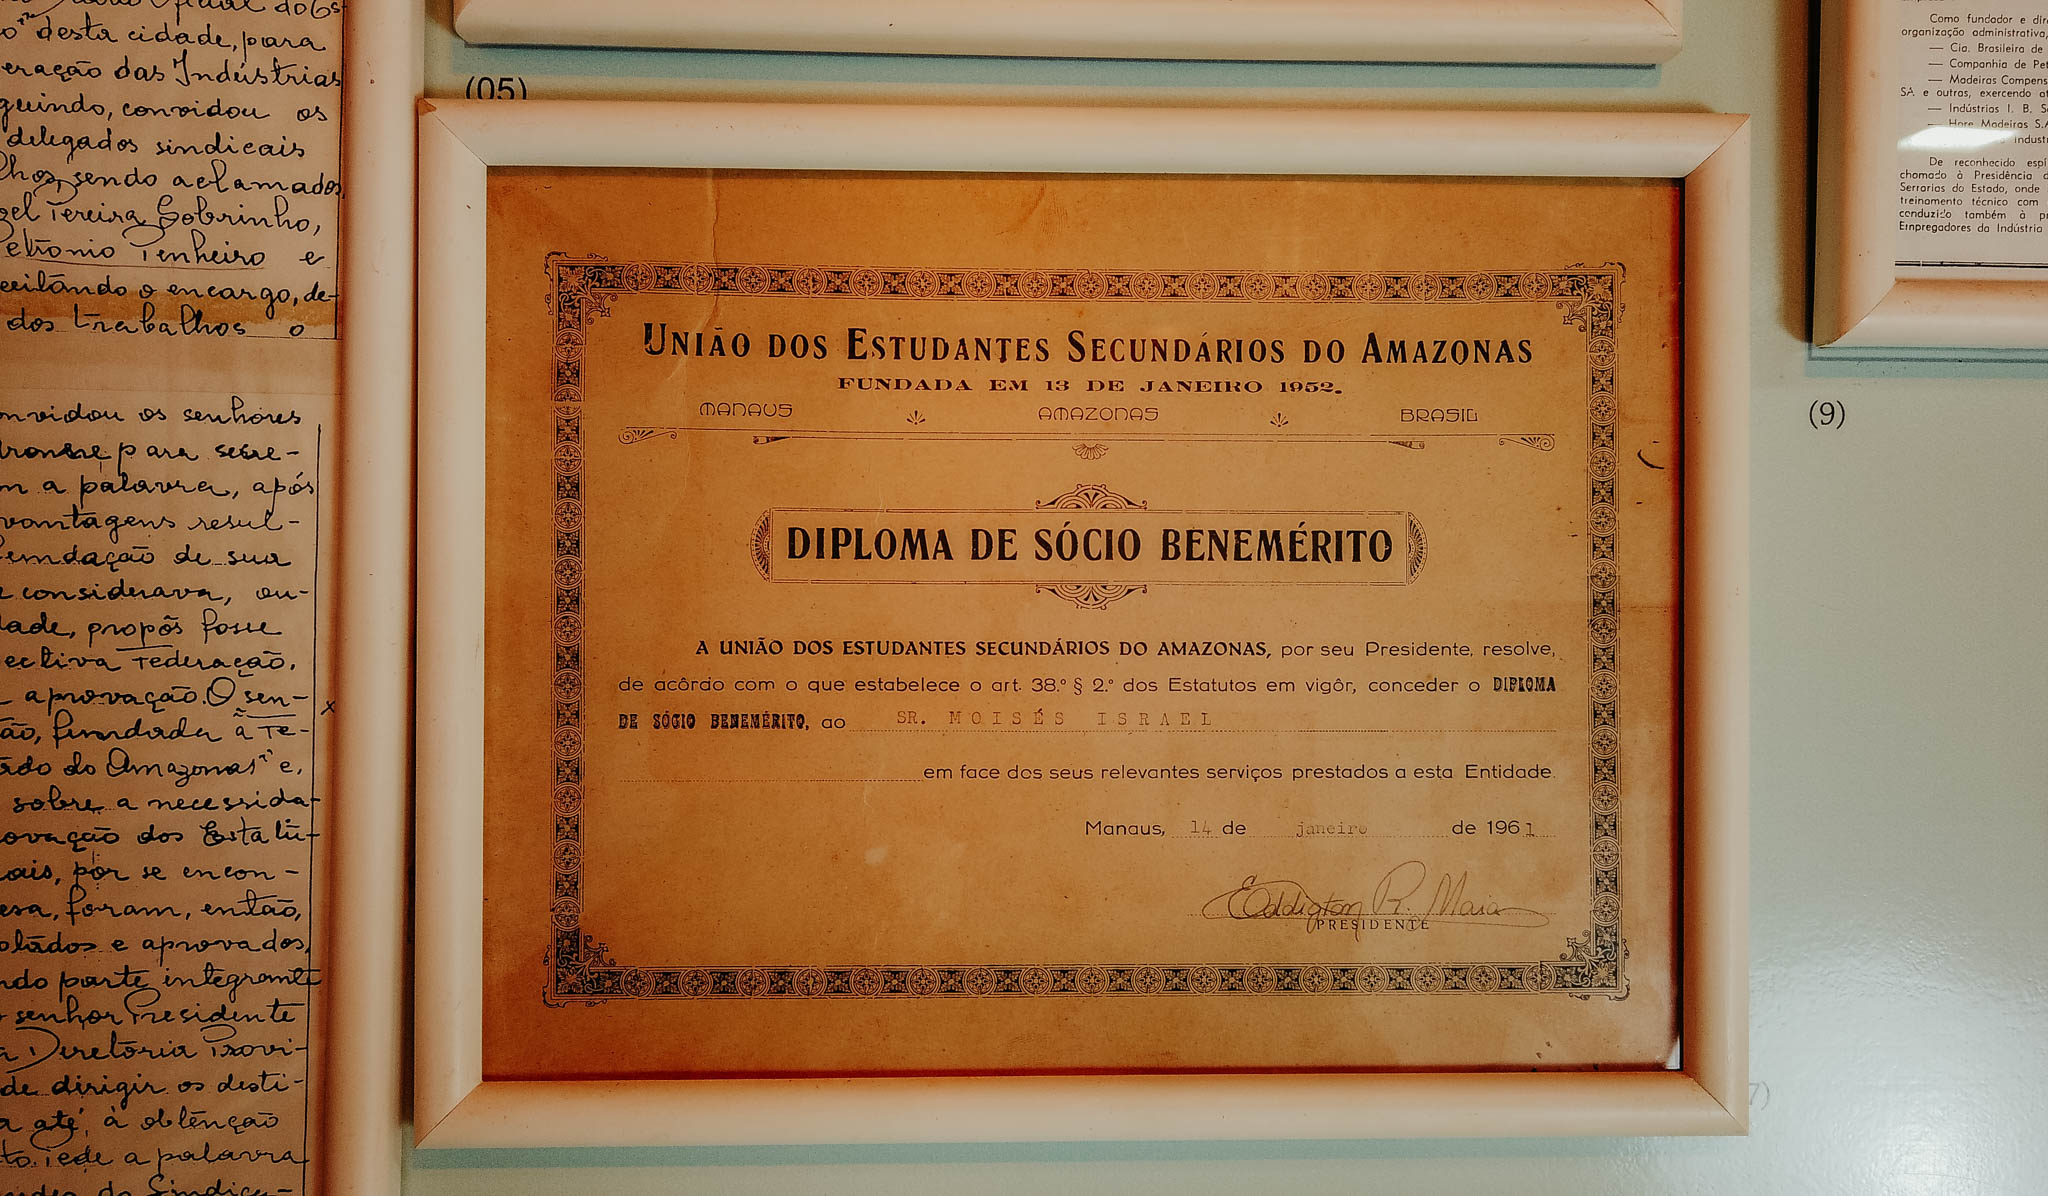 desta cidade, para
das Indústrias
convidou os
delegados sindicais
sendo aclamados
Pereira Sobrinho,
e
o encargo, de-
dos trabalhos o
os senhores
para secre-
a palavra, após
vantagens resul-
de sua
considerava, ou-
propôs fosse
Federação.
aprovação. O sen-
fundada a Fe-
do Amazonas" e,
sobre a necessida-
dos Estatu-
por se encon-
foram, então,
e aprovados,
parte integrante
senhor Presidente
Diretoria Provi-
de dirigir os desti-
até, à obtenção
Pede a palavra
do Sindica-
(05)
UNIÃO DOS ESTUDANTES SECUNDÁRIOS DO AMAZONAS
FUNDADA EM 13 DE JANEIRO 1952.
MANAUS AMAZONAS BRASIL
DIPLOMA DE SÓCIO BENEMÉRITO
A UNIÃO DOS ESTUDANTES SECUNDÁRIOS DO AMAZONAS, por seu Presidente, resolve,
de acôrdo com o que estabelece o art. 38.º § 2.º dos Estatutos em vigôr, conceder o DIPLOMA
DE SÓCIO BENEMÉRITO, ao SR. MOISÉS ISRAEL
em face dos seus relevantes serviços prestados a esta Entidade.
Manaus, 14 de janeiro de 1961
Eddigton R. Maia
PRESIDENTE
Como fundador e
organização administrativa,
— Cia. Brasileira de
— Companhia de
— Madeiras
SA. e outras, exercendo
— Indústrias I. B.
— Hore Madeiras S.A
De reconhecido
chamado à Presidência
Serrarias do Estado, onde
treinamento técnico com
conduzido também à
Empregadores da Indústria
(9)
7)